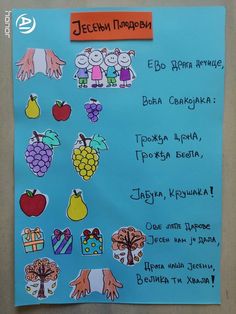 Јесењи Плодови
Ево драга дечице,
Воћа свакојака:
Грожђа црна,
Грожђа бела,
Јабука, крушака!
Ове лепе дарове
Јесен нам је дала,
Драга наша јесени,
Велика ти хвала!
honor
AI